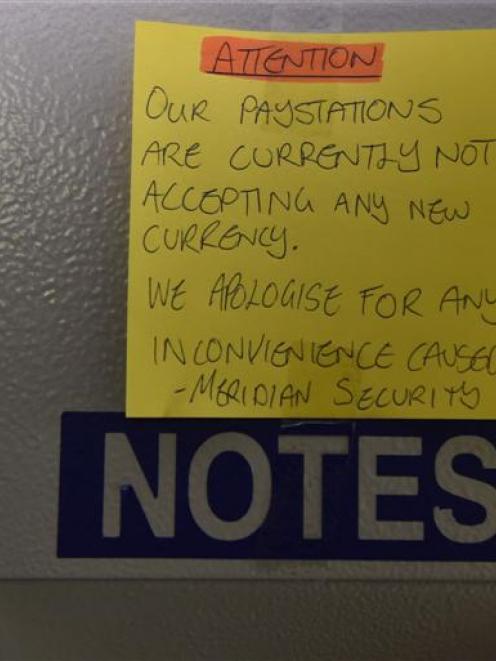 ATTENTION
OUR PAYSTATIONS
ARE CURRENTLY NOT
ACCEPTING ANY NEW
CURRENCY.
WE APOLOGISE FOR ANY
INCONVIENIENCE CAUSED
-MERIDIAN SECURITY
NOTES